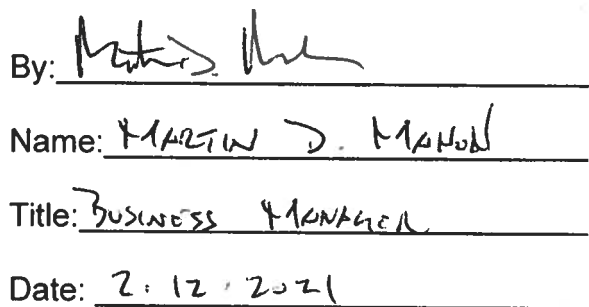 By: Martin D.
Name: MARTIN D. MAHON
Title: BUSINESS MANAGER
Date: 2.12.2021